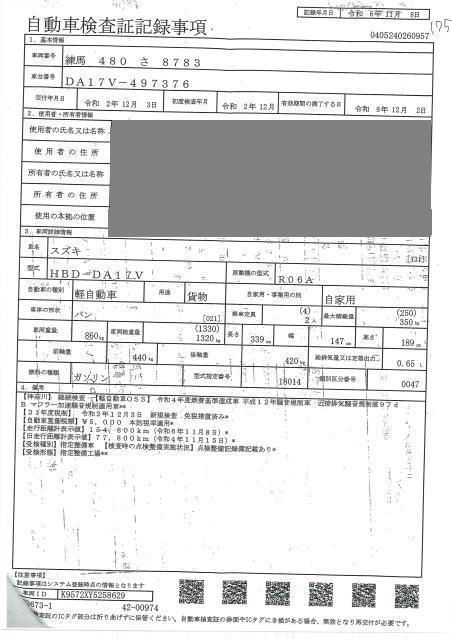 記録年月日 令和 6年11月 8日
175
自動車検査証記録事項
0405240260957
1．基本情報
車両番号 練馬 480 さ 8783
車台番号 DA17V-497376
交付年月日 令和 2年12月 3日 初度検査年月 令和 2年12月 有効期間の満了する日 令和 8年12月 2日
2．使用者・所有者情報
使用者の氏名又は名称
使用者の住所
所有者の氏名又は名称
所有者の住所
使用の本拠の位置
3．車両詳細情報
車名 スズキ [131]
型式 HBD-DA17V 原動機の型式 R06A
自動車の種別 軽自動車 用途 貨物 自家用・事業用の別 自家用
車体の形状 バン [021] 乗車定員 (4) 2人 最大積載量 (250) 350kg
車両重量 860kg 車両総重量 (1330) 1320kg 長さ 339cm 幅 147cm 高さ 189cm
前軸重 440kg 後軸重 420kg 総排気量又は定格出力 0.65L
燃料の種類 ガソリン 型式指定番号 18014 類別区分番号 0047
4．備考
【神奈川】 継続検査 【軽自動車OSS】 令和4年度燃費基準達成車 平成12年騒音規制車 近接排気騒音規制値97d
B マフラー加速騒音規制適用車**
【31年度税制】 令和2年12月3日 新規検査 免税措置済み*
【自動車重量税額】 ¥5,000 本則税率適用*
【走行距離計表示値】 154,800km（令和6年11月8日）*
【旧走行距離計表示値】 77,800km（令和4年11月15日）*
【受検種別】指定整備車 【検査時の点検整備実施状況】点検整備記録簿記載あり*
【受検形態】指定整備工場**
【注意事項】
記録事項はシステム登録時点の情報となります
車両ID K9572XY5258629
673-1 42-00974
検査証のICタグ部分は折り曲げずに保管ください。自動車検査証の券面やICタグにき損がある場合、無効となり再交付が必要です。